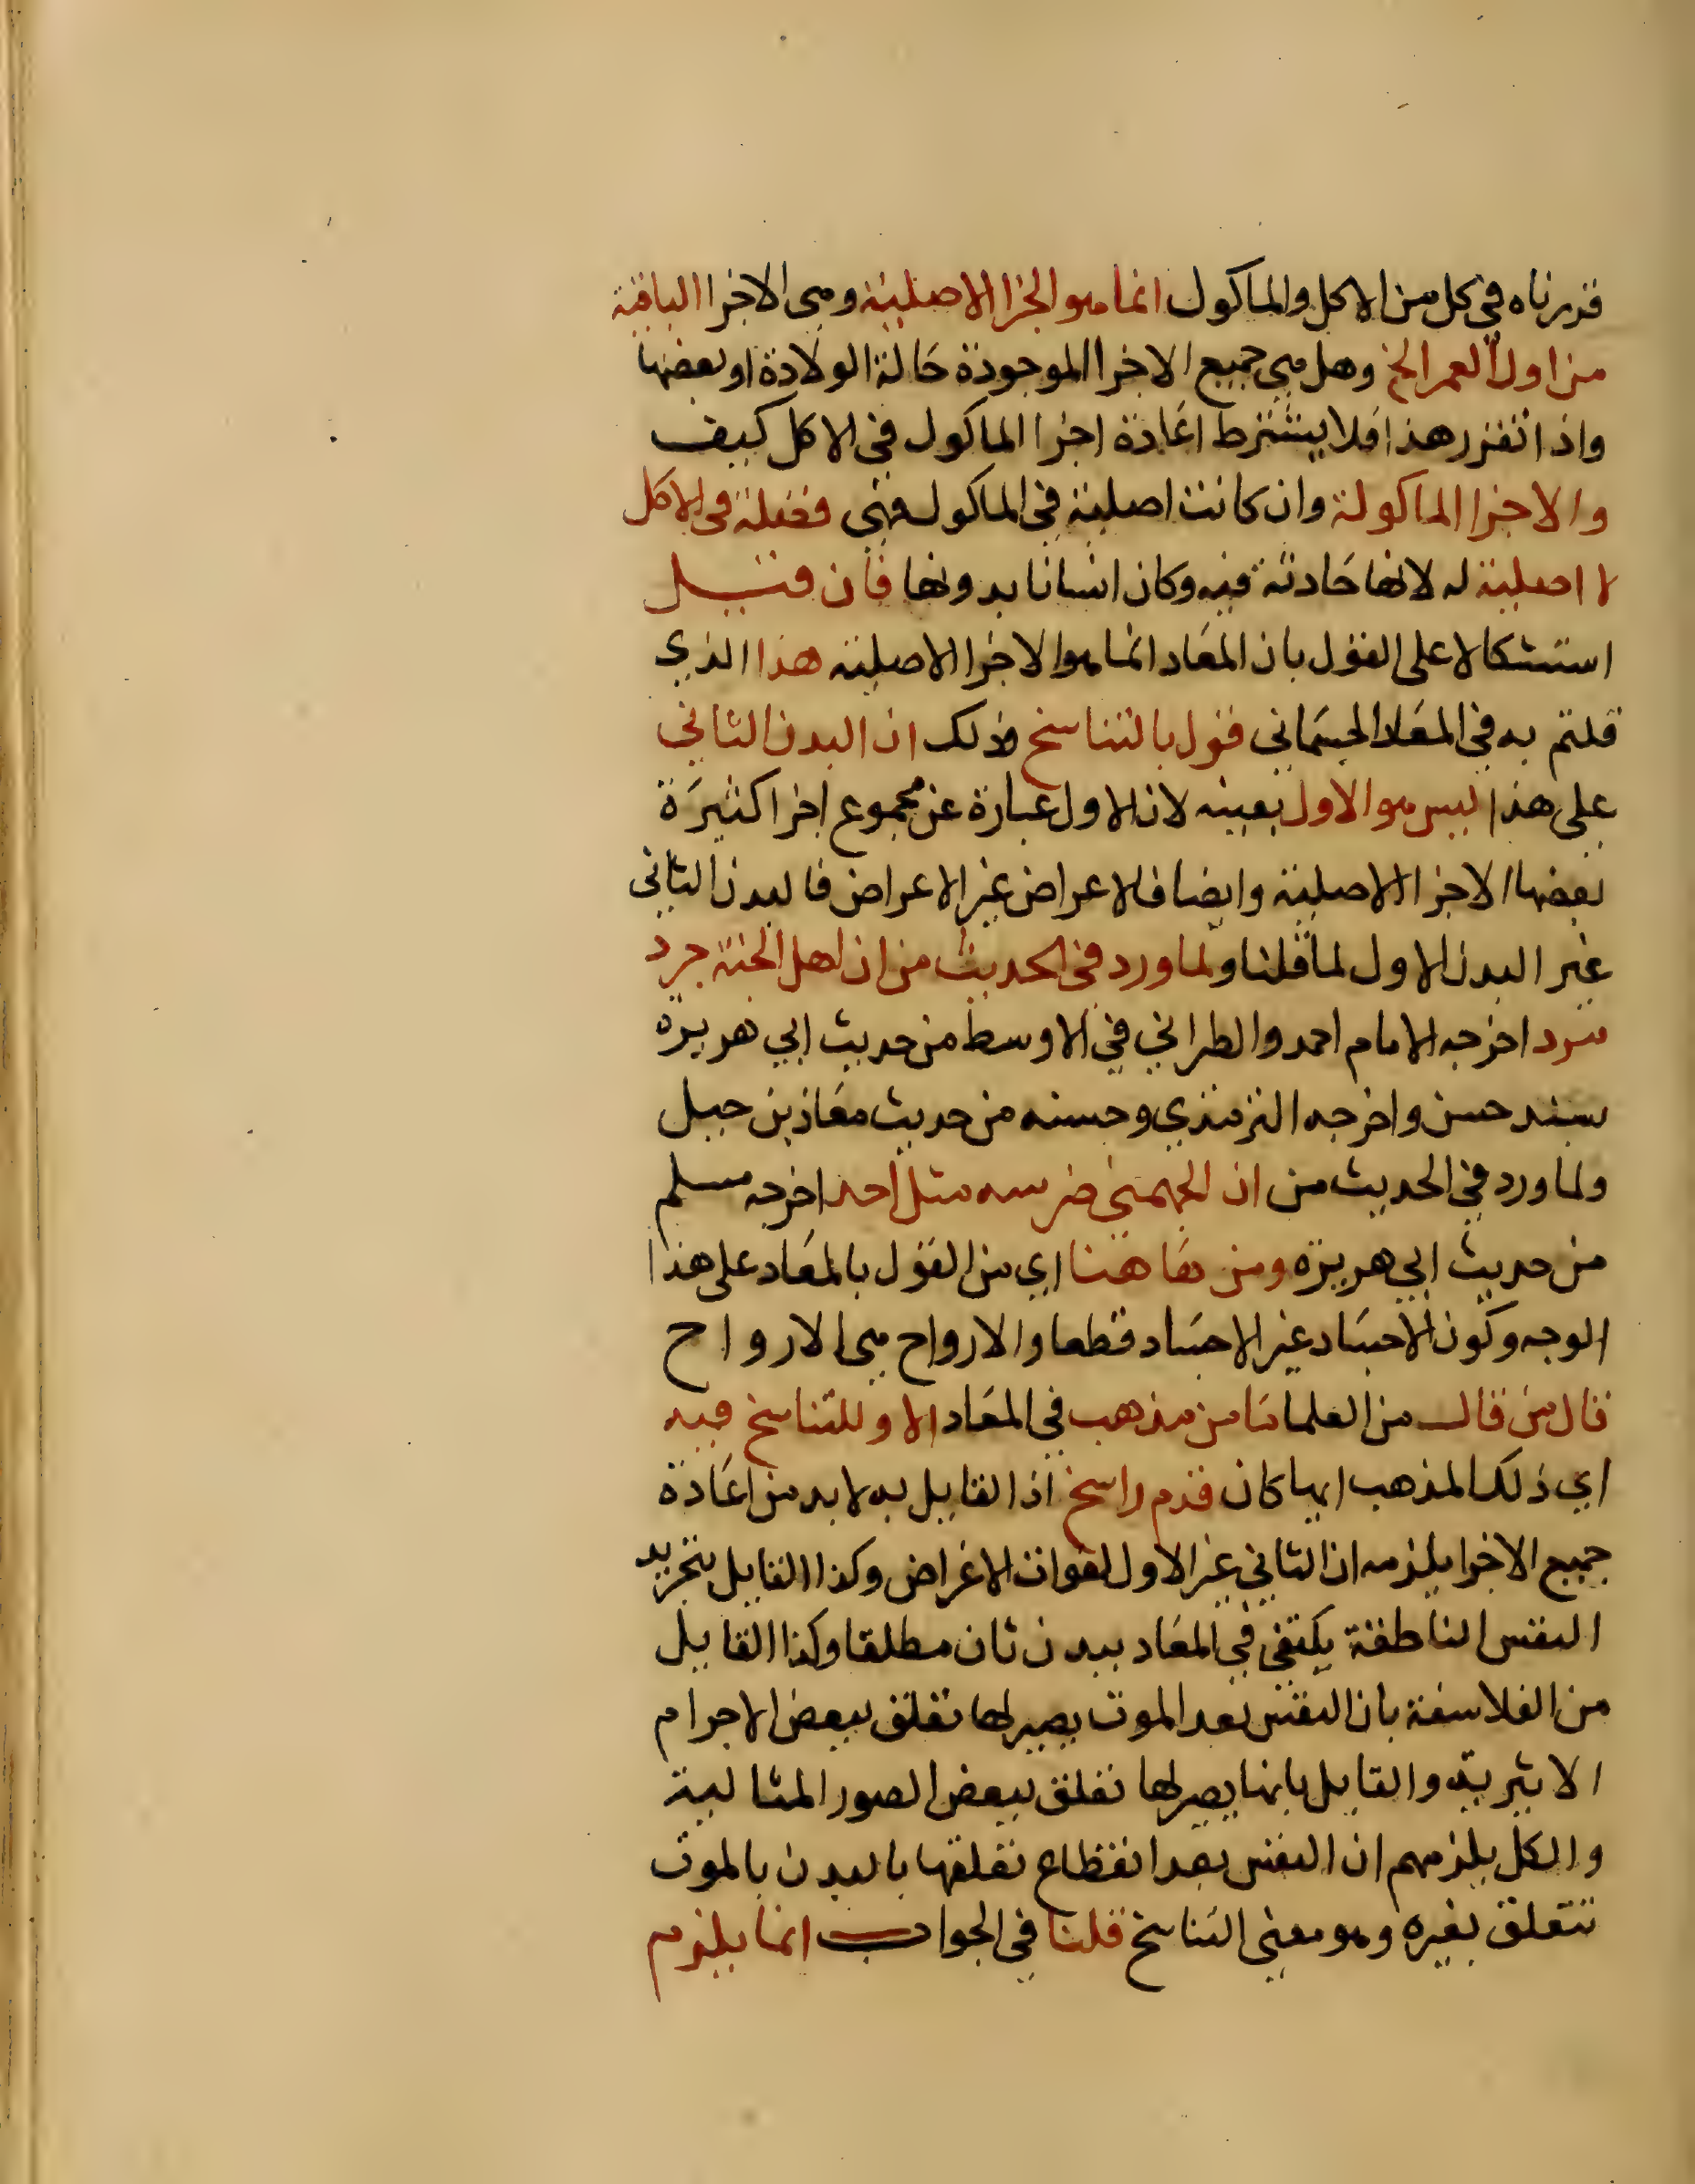 قررناه في كل من الاكل والماكول انما هو الجزا الاصلية وهي الاجزا الباقية
من اول العمر الخ وهل هي جميع الاجزا الموجودة حالة الولادة او بعضها
واذا تقرر هذا فلا يشترط اعادة اجزا الماكول في الاكل كيف
والاجزا الماكولة وان كانت اصلية في الماكول فهي فضلة في الاكل
لا اصلية له لانها حادثة فيه وكان انسانا بدونها فان قيل
استشكالا على القول بان المعاد انما هو الاجزا الاصلية هذا الذي
قلتم به في المعاد الجسماني قول بالتناسخ وذلك ان البدن الثاني
على هذا ليس هو الاول بعينه لان الاول عبارة عن مجموع اجزا كثيرة
بعضها الاجزا الاصلية وايضا فالاعراض غير الاعراض فالبدن الثاني
غير البدن الاول لما قلنا ولما ورد في الحديث من ان اهل الجنة جرد
مرد اخرجه الامام احمد والطبراني في الاوسط من حديث ابي هريرة
بسند حسن واخرجه الترمذي وحسنه من حديث معاذ بن جبل
ولما ورد في الحديث من ان الجهنمي ضرسه مثل احد اخرجه مسلم
من حديث ابي هريرة ومن هاهنا اي من القول بالمعاد على هذا
الوجه وكون الاجساد غير الاجساد قطعا والارواح هي الارواح
قال من قال من العلما ما من مذهب في المعاد الا وللتناسخ فيه
اي ذلك المذهب ايها كان قدم راسخ اذ القايل به لا بد من اعادة
جميع الاجزا يلزمه ان الثاني غير الاول لفوات الاعراض وكذا القايل بتجريد
النفس الناطقة يكتفي في المعاد ببدن ثان مطلقا وكذا القايل
من الفلاسفة بان النفس بعد الموت يصير لها تعلق ببعض الاجرام
الاثيرية والقايل بانها يصير لها تعلق ببعض الصور المثالية
والكل يلزمهم ان النفس بعد انقطاع تعلقها بالبدن بالموت
تتعلق بغيره وهو معنى التناسخ قلنا في الجواب انما يلزم